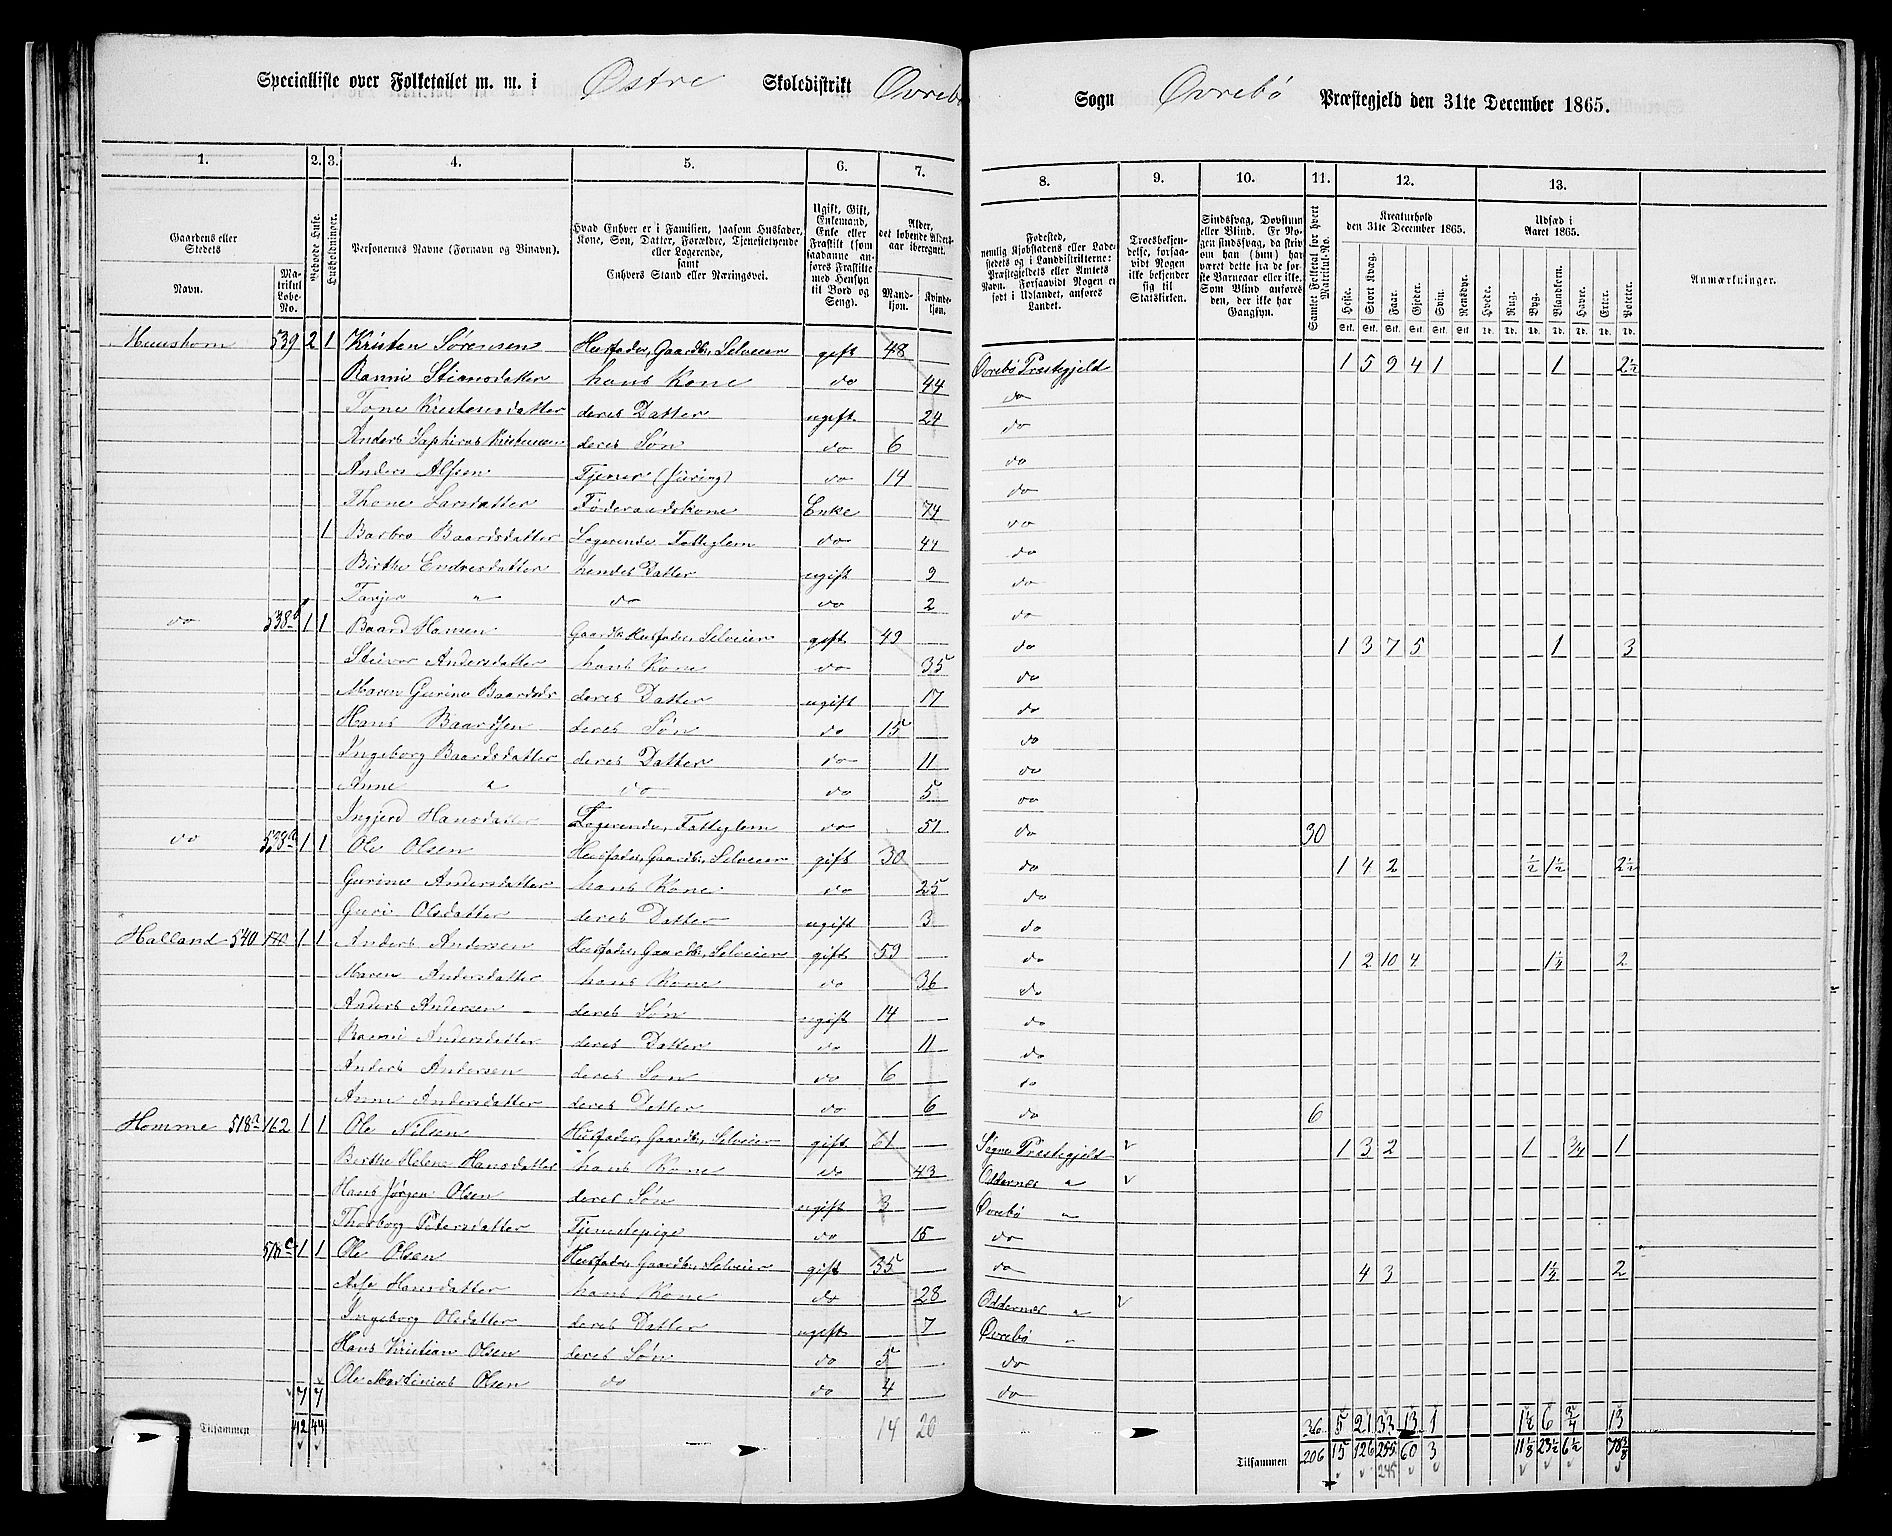 Specialliste over Folketallet m. m. i Østre Skoledistrikt Øvrebø Sogn Øvrebø Præstegjeld den 31te December 1865.
1. 2. 3. 4. 5. 6. 7. 8. 9. 10. 11. 12. 13.
Gaardens eller Stedets Navn. Matrikul Løbe-No. Beboede Huse. Husholdninger. Personernes Navne (Fornavn og Binavn). Hvad Enhver er i Familien, saasom Husfader, Kone, Søn, Datter, Forældre, Tjenestetyende eller Logerende, samt Enhvers Stand eller Næringsvei. Ugift, Gift, Enkemand, Enke eller Fraskilt (som saadanne anføres Fraskilte med Hensyn til Bord og Seng). Alder, det løbende Aldersaar iberegnet. Mandkjøn. Kvindekjøn.
Fødested, nemlig Kjøbstadens eller Ladestedets og i Landdistrikterne: Præstegjeldets eller Amtets Navn. Forsaavidt Nogen er født i Udlandet, anføres Landet. Troesbekjendelse, forsaavidt Nogen ikke bekjender sig til Statskirken. Sindssvag, Døvstum eller Blind. Er Nogen sindssvag, da skrives om han (hun) har været dette fra de første Barneaar eller ikke. Som Blind anføres den, der ikke har Gangsyn. Samlet Folketal for hvert Matrikul-No. Kreaturhold den 31te December 1865. Heste. Stort Kvæg. Faar. Gjeder. Sviin. Rensdyr. Udsæd i Aaret 1865. Hvede. Rug. Byg. Blandkorn. Havre. Erter. Poteter. Anmærkninger.
Haustom 539 2 1 Kristen Sørensen Husfader, Gaardbr, Selveier gift 48 Øvrebø Præstegjeld 1 5 9 4 1 1 2½
Ranni Stiansdatter hans Kone do 44 do
Tone Kristensdatter deres Datter ugift 24 do
Anders Saphirus Kristensen deres Søn do 6 do
Anders Alfsen Tjener do 14 do
Thone Larsdatter Føderaadskone Enke 74 do
1 Barbro Baardsdatter Logerende Fattiglem do 44 do
Birthe Endresdatter hendes Datter ugift 9 do
Tarjer " do do 2 do
do 538b 1 1 Baard Hansen Gaardb. Husfader, Selveier gift 49 do 1 3 7 5 1 3
Stiever Andersdatter hans Kone do 35 do
Maren Gurine Baardsdr deres Datter ugift 17 do
Hans Baardsen deres Søn do 15 do
Ingeborg Baardsdatter deres Datter do 11 do
Anne " do do 5 do
Ingjerd Hansdatter Logerende, Fattiglem do 51 do 30
do 538a 1 1 Ole Olsen Husfader, Gaardbr, Selveier gift 30 do 1 4 2 ½ 1½ 2½
Gurine Andersdatter hans Kone do 25 do
Guri Olsdatter deres Datter ugift 3 do
Halland 540 170 1 1 Anders Andersen Husfader, Gaardbr, Selveier gift 59 do 1 2 10 4 1¼ 2
Maren Andersdatter hans Kone do 36 do
Anders Andersen deres Søn ugift 14 do
Ranni Andersdatter deres Datter do 11 do
Anders Andersen deres Søn do 6 do
Anne Andersdatter deres Datter do 6 do 6
Homme 518a 162 1 1 Ole Nilsen Husfader, Gaardbr, Selveier gift 61 Søgne Præstegjeld 1 3 2 1 ¾ 1
Birthe Helene Hansdatter hans Kone do 43 Oddernes "
Hans Jørgen Olsen deres Søn ugift 3 Øvrebø "
Thorborg Petersdatter Tjenestepige do 15 do
518c 1 1 Ole Olsen Husfader, Gaardbr, Selveier gift 35 do 4 3 1½ 2
Aase Hansdatter hans Kone do 28 Oddernes "
Ingeborg Olsdatter deres Datter ugift 7 Øvrebø "
Hans Kristian Olsen deres Søn do 5 do
Ole Martinius Olsen do do 4 do
7 7
Tilsammen 42 44 14 20 36 5 21 33 13 1 6 ¾ 13
Tilsammen 206 15 126 255 60 3 23½ 6½
245